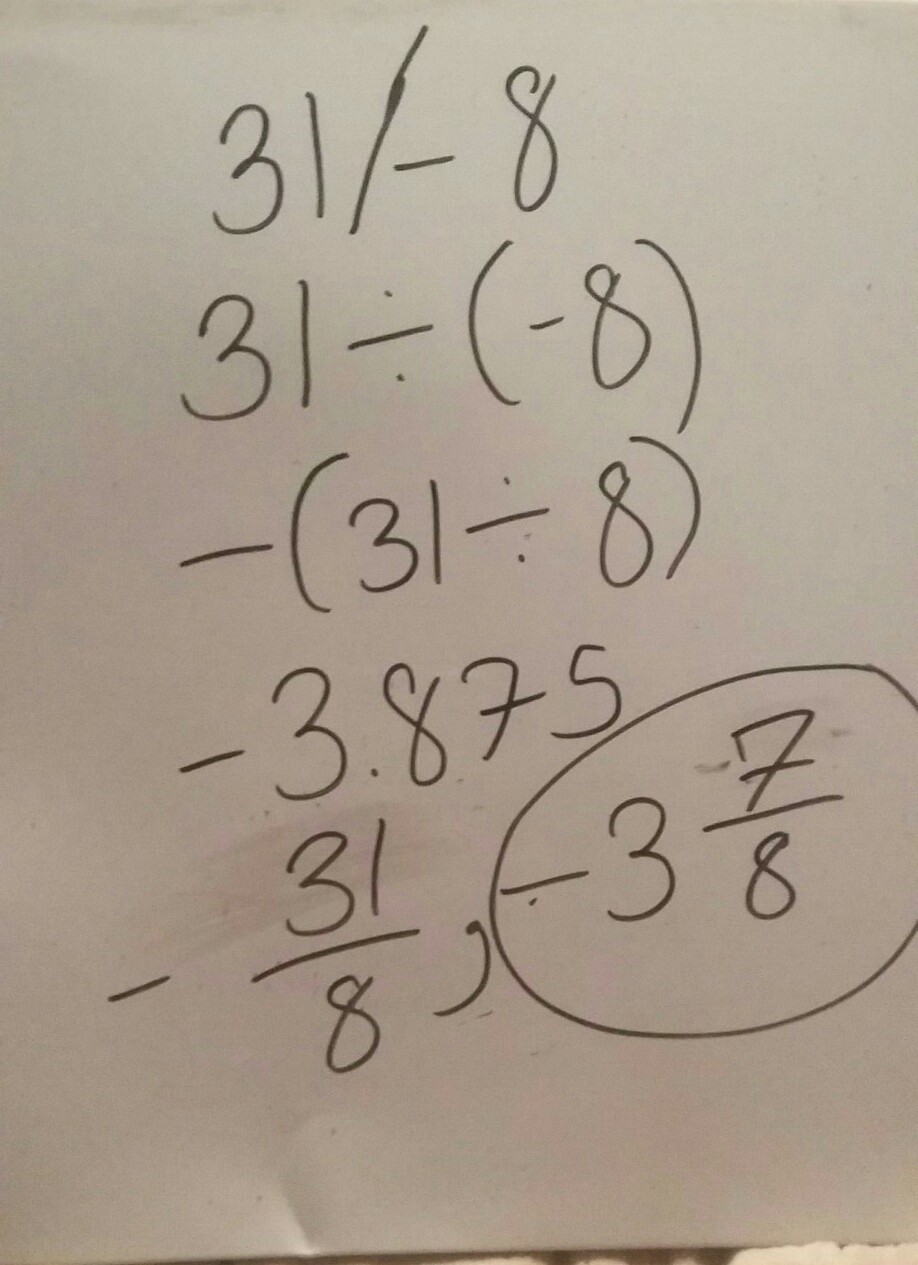 31/-8
31÷(-8)
-(31÷8)
-3.875
-31/8, -3 7/8